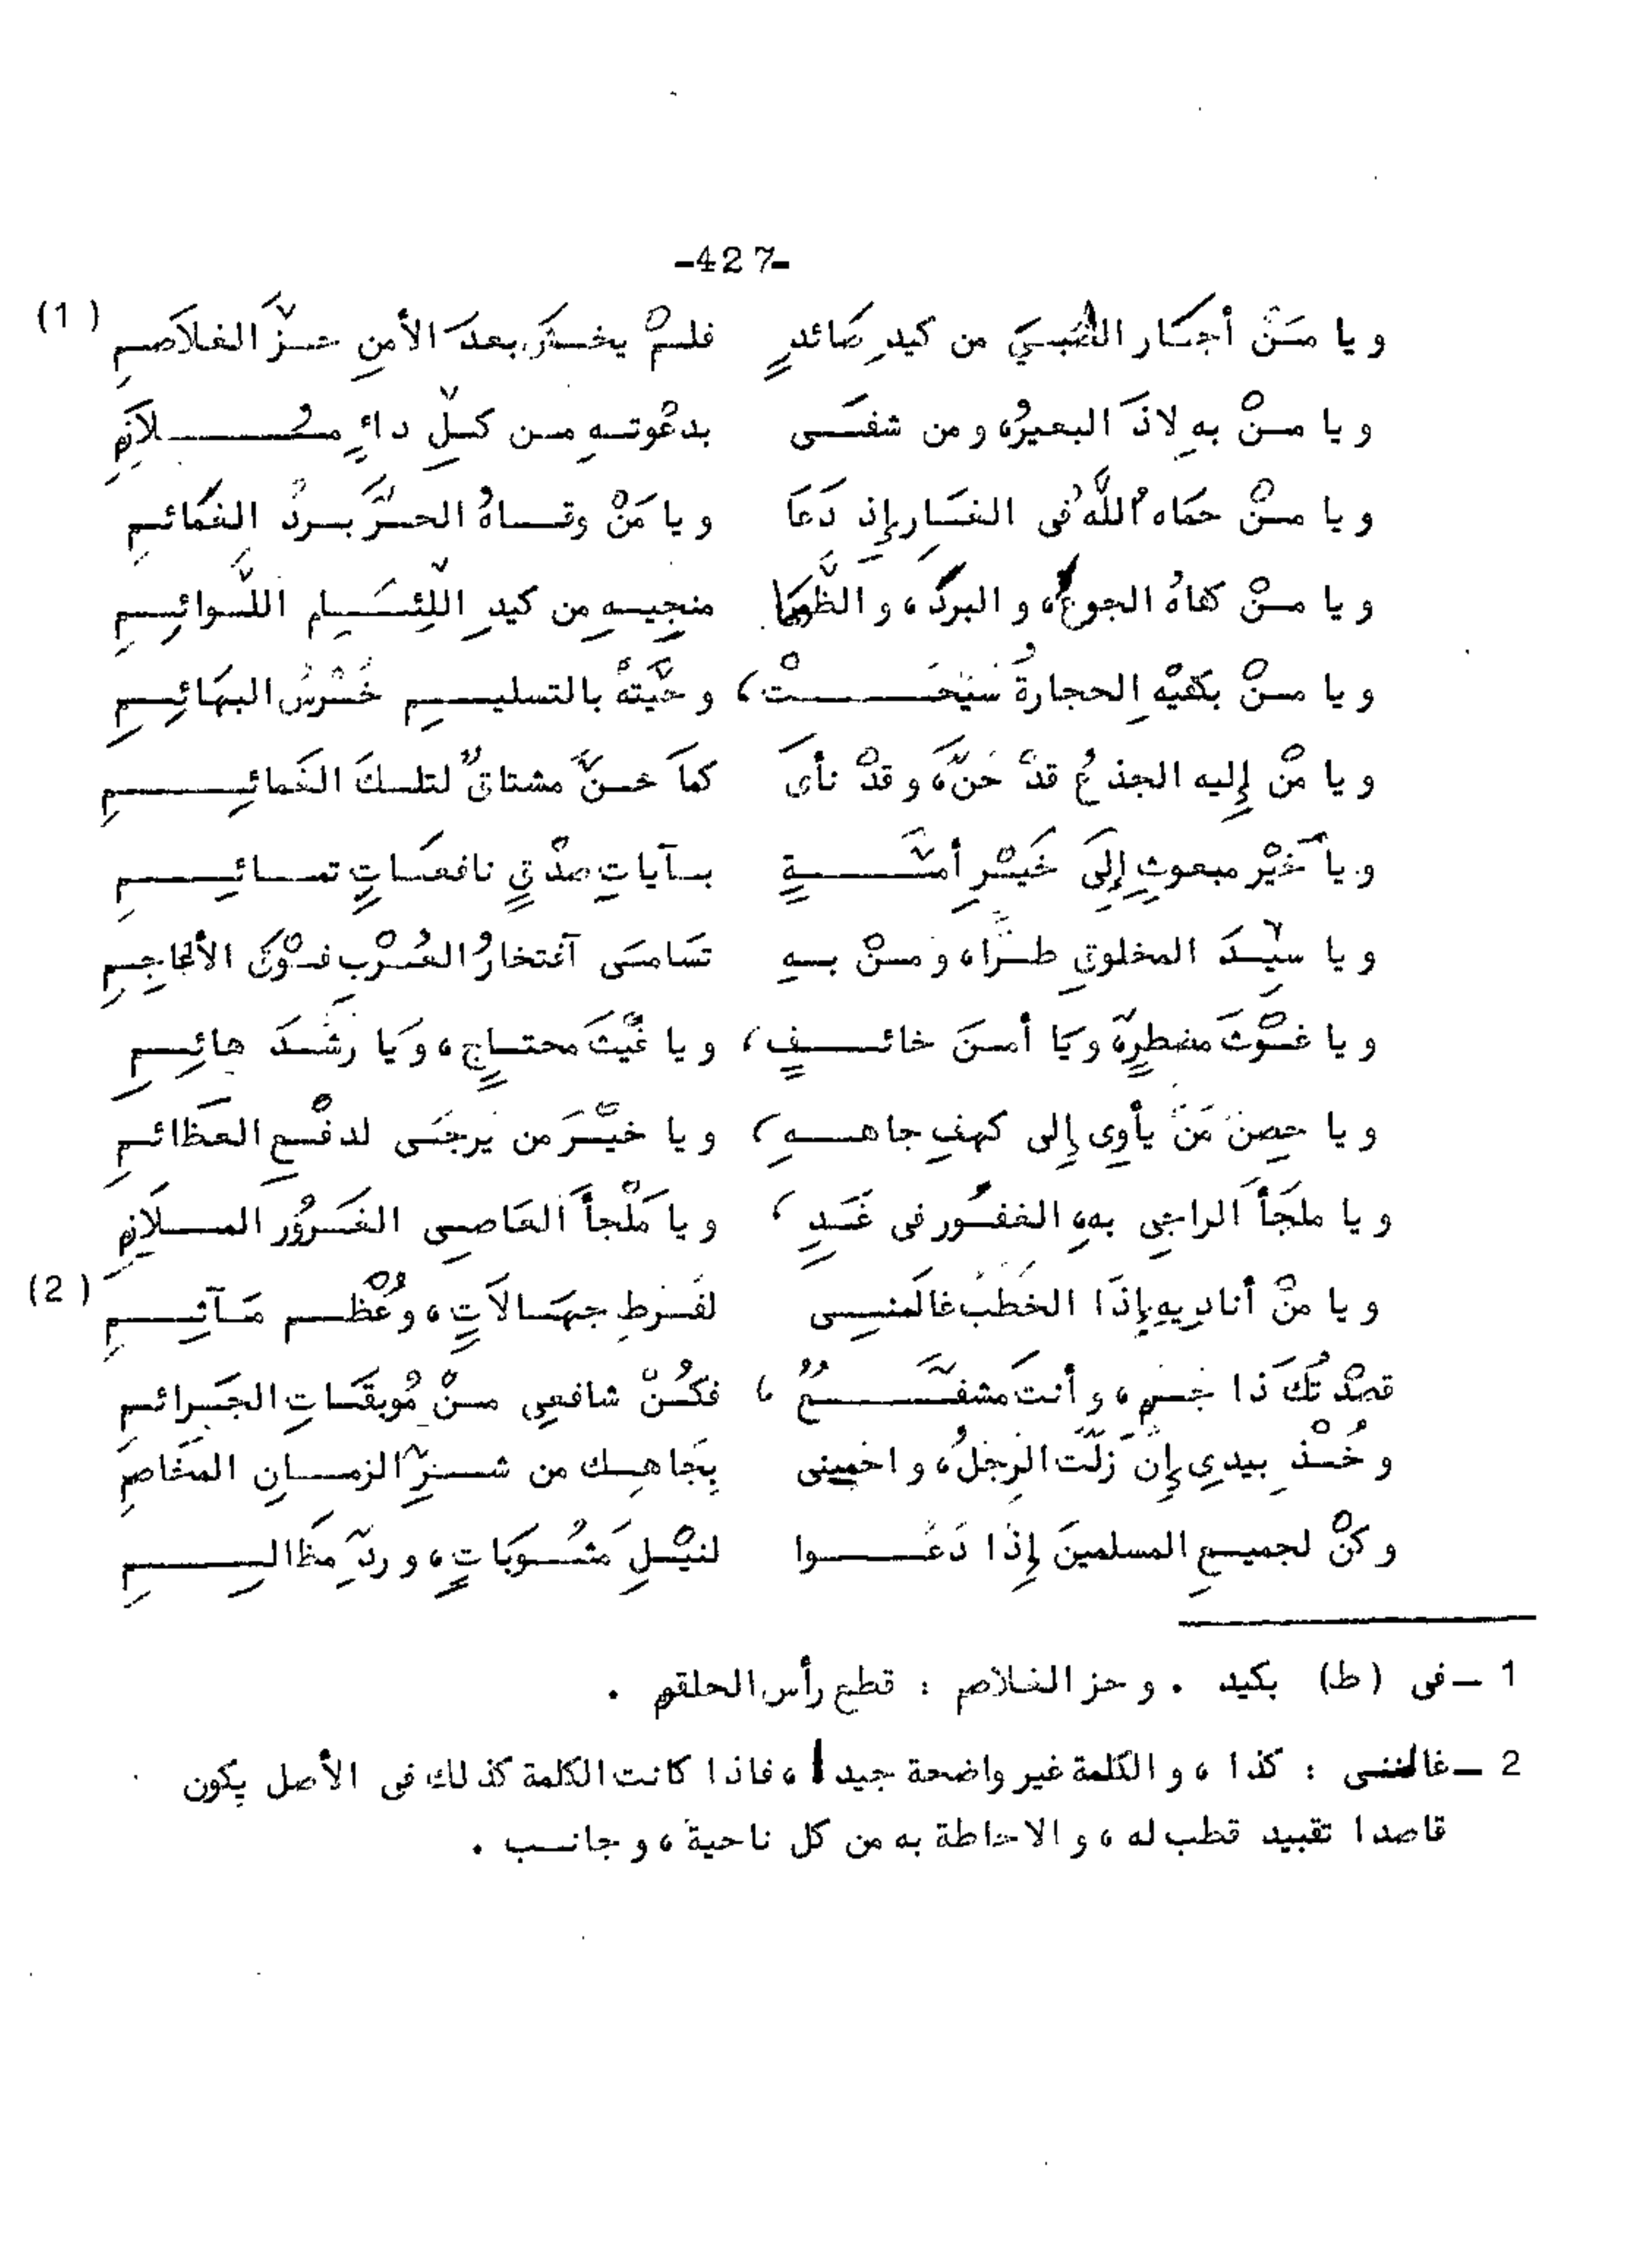 -427-
ويا مَنْ أجَار الظبيَ من كيدِ صَائدٍ فلمْ يخشَ بعدَ الأمنِ حزَّ الغلاَصمِ (1)
ويا منْ بهِ لاذَ البعيرُ، ومن شفَى بدعْوتهِ من كلِّ داءٍ مُلاَزمِ
ويا منْ حمَاه اللَّهُ فى الغَار إِذ دَعَا ويا مَنْ وقاهُ الحرَّ بردُ الغمَائمِ
ويا منْ كفاهُ الجوعَ، والبردَ، والظَّمَا منجِيهِ من كيدِ اللِّئَامِ اللَّوائِمِ
ويا منْ بكفيْهِ الحجارةُ سَبَّحَتْ، وحَيَّتهُ بالتسليمِ خُرْسُ البهَائِمِ
ويا مَنْ إِليه الجذعُ قدْ حَنَّ، وقدْ نأىَ كمَا حنَّ مشتاقٌ لتلكَ الغَمائِمِ
ويا خَيْر مبعوثٍ إِلَى خَيْرِ أمَّةٍ بآياتِ صدْقٍ نافعَاتٍ تمائِمِ
ويا سيِّدَ المخلوقِ طرًّا، ومنْ بهِ تسَامَى آفتخارُ العُرْبِ فوْقَ الأَعاجِمِ
ويا غوْثَ مضطرٍّ، ويَا أمنَ خائفٍ، ويا غَيْثَ محتاجٍ، ويَا رشْدَ هائِمِ
ويا حِصنَ مَنْ يأوِى إِلى كهفِ جاههِ، ويا خيْرَ من يُرجَى لدفْعِ العظَائمِ
ويا ملجَأَ الراجِى بهِ، الغفُور فى غَدٍ، ويا مَلْجأَ العَاصى الغَرُورِ الملاَزمِ
ويا منْ أنادِيهِ إِذَا الخَطْبُ غالَمنِى لفَرْطِ جهَالاَتٍ، وعُظْم مَآثِمِ (2)
قصدْتُكَ ذا جُرْمٍ، وأنتَ مشفَّعٌ، فكُنْ شافعِى منْ مُوبقَاتِ الجَرائمِ
وخُذْ بيدِى إِنْ زَلَّت الرِجْلُ، واحْمِنى بِجَاهِك من شرِّ الزمانِ المخَاصمِ
وكنْ لجميعِ المسلمينَ إِذَا دَعَوا لنيْلِ مَثُوبَاتٍ، وردِّ مظَالِمِ
1 - فى (ط) بكيد . وحز الغلاصم : قطع رأس الحلقم .
2 - غالمنى : كذا، والكلمة غير واضحة جيدا، فاذا كانت الكلمة كذلك فى الأصل يكون
قاصدا تقييد قطب له، والاحاطة به من كل ناحية، وجانب .